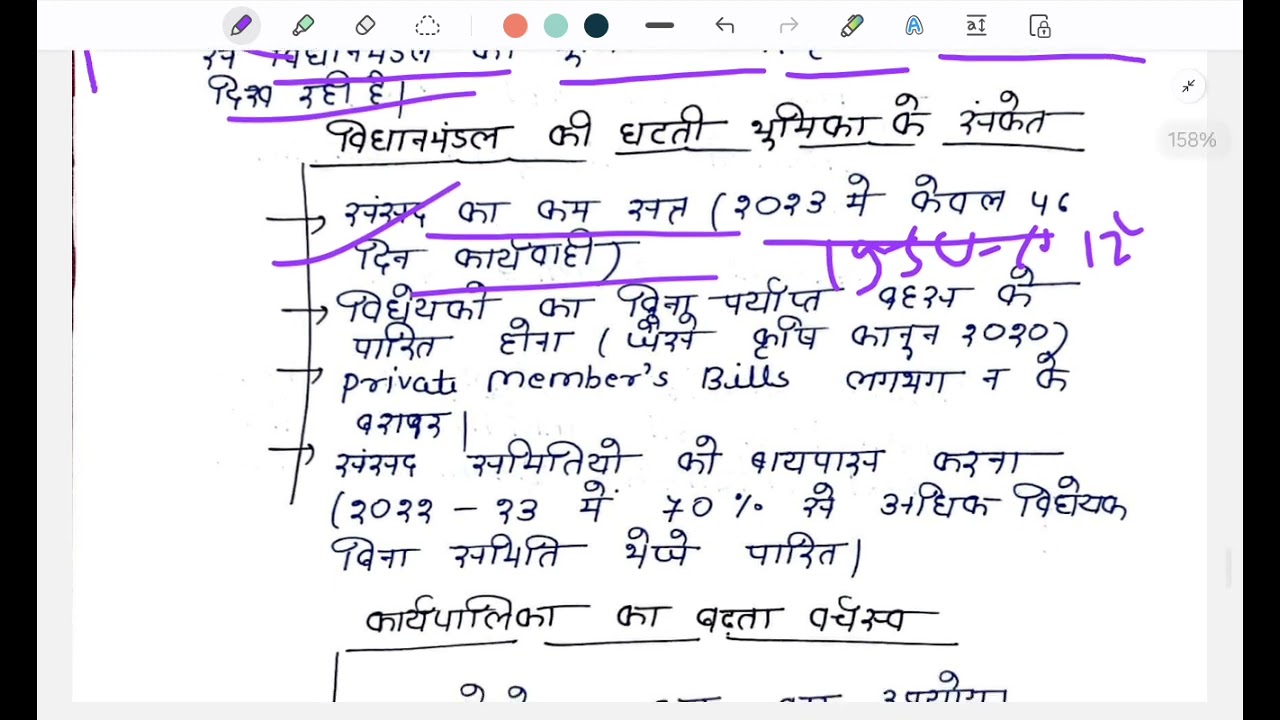 विधानमंडल
दिख रही है।
विधानमंडल की घटती भूमिका के संकेत
158%
→ संसद का कम सत्र (२०२३ मे केवल ५६
दिन कार्यवाही)
12
→ विधेयको का बिना पर्याप्त बहस के
पारित होना (जैसे कृषि कानुन २०२०)
→ Private Member's Bills लगभग न के
बराबर।
→ संसद समितियो को बायपास करना
(२०२२ - २३ में ७०% से अधिक विधेयक
बिना समिति भेजे पारित।
कार्यपालिका का बढ़ता वर्चस्व